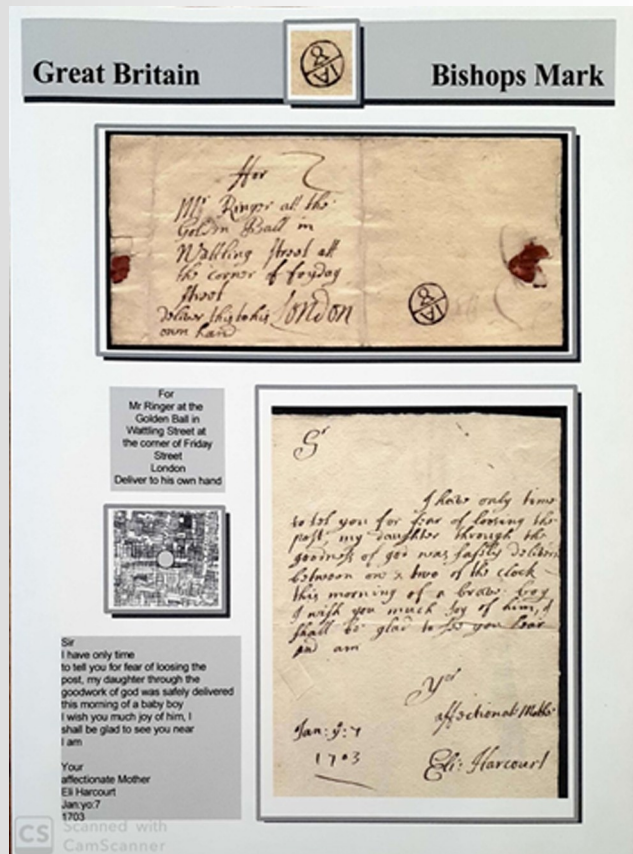 Great Britain
Bishops Mark
IA
8
For
Mr Ringer att the
Golden Ball in
Wattling street att
the corner of fryday
street
deliver this to his London
own hand
IA
8
For
Mr Ringer at the
Golden Ball in
Wattling Street at
the corner of Friday
Street
London
Deliver to his own hand
Sr
I have only time
to tel you for fear of loosing the
post, my daughter through the
goodness of god was safily deliver
between on & two of the clock
this morning of a brave boy
I wish you much Joy of him, I
shall be glad to see you hear
and am
Yor
affectionat Mother
Jan: y: 7
1703
Eli: Harcourt
Sir
I have only time
to tell you for fear of loosing the
post, my daughter through the
goodwork of god was safely delivered
this morning of a baby boy
I wish you much joy of him, I
shall be glad to see you near
I am
Your
affectionate Mother
Eli Harcourt
Jan:yo:7
1703
CS Scanned with
CamScanner